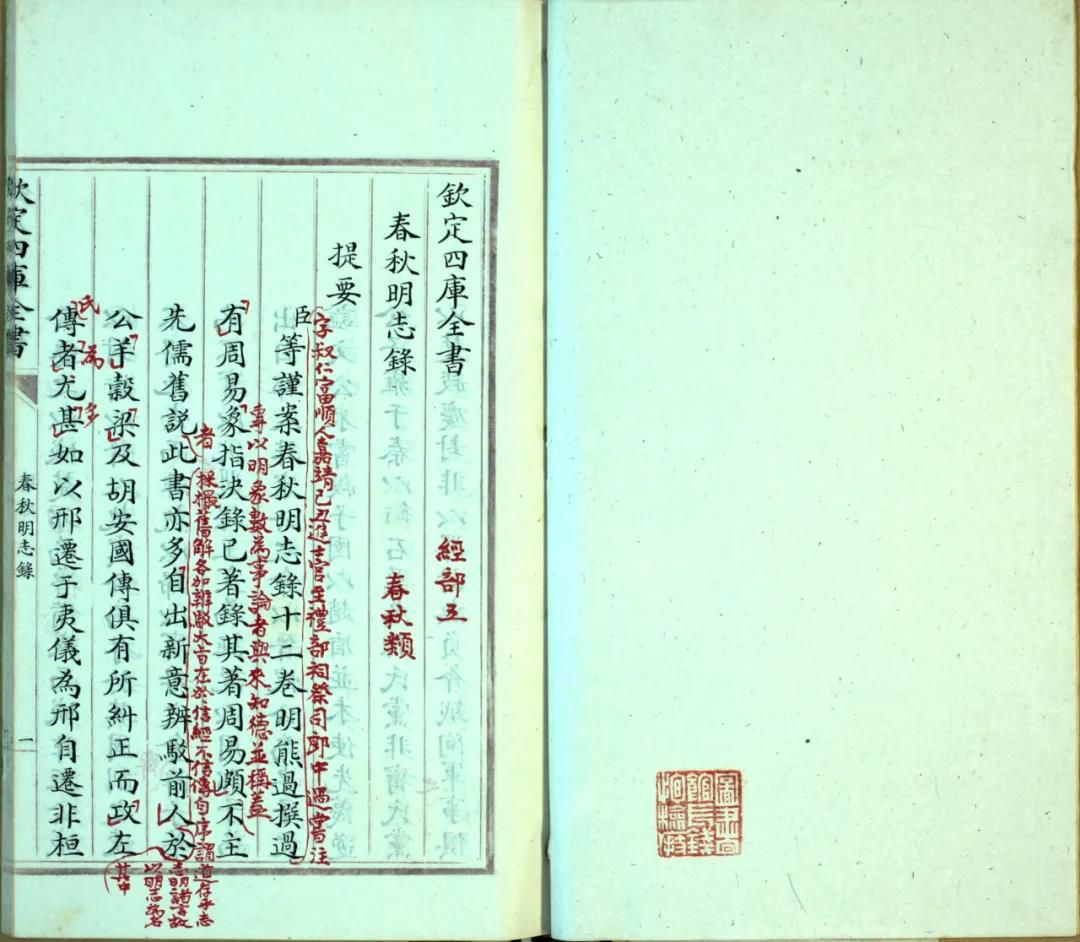 欽定四庫全書
經部五
春秋明志錄
春秋類
提要
字叔仁富順人嘉靖己丑進士官至禮部祠祭司郎中過嘗注
臣等謹案春秋明志錄十二卷明熊過撰過
專以明象數為事論者與來知德並稱蓋
有周易象指決錄已著錄其著周易頗不主
者採撮舊解各加辨駁大旨在於信經不信傳自序謂道存乎志
志明諸言故
以明志為名
先儒舊說此書亦多自出新意辨駁前人於
其中
公羊穀梁及胡安國傳俱有所糾正而攻左
氏為多
傳者尤甚如以邢遷于夷儀為邢自遷非桓
欽定四庫全書
春秋明志錄
一